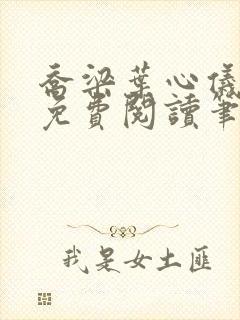 喬梁葉心儀
免費閱讀筆
我是女土匪